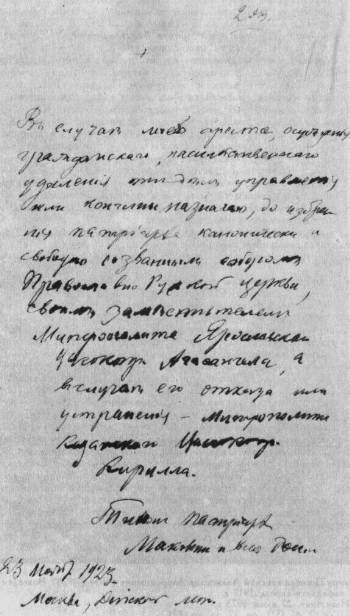 2 эк.
Въ случаѣ моего ареста, осужденія
гражданскаго, насильственнаго
удаленія отъ дѣлъ управленія
или кончины назначаю, до избра-
нія патріарха канонически и
свободно созваннымъ соборомъ
Православно Русской церкви,
своимъ заместителемъ
Митрополита Ярославскаго
Агафангела, а
въ случаѣ его отказа или
устраненія – Митрополита
Казанскаго
Кирилла.
Тихонъ Патріархъ
Московскій и всея
23 1923.
Москва, Донской мон.